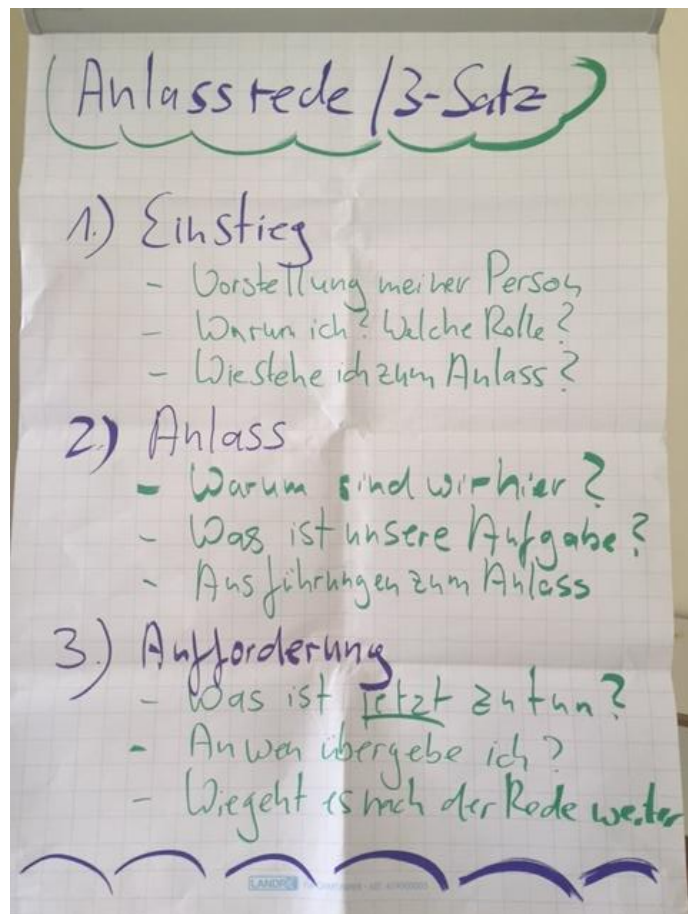 Anlassrede / 3-Satz
1.) Einstieg
- Vorstellung meiner Person
- Warum ich? Welche Rolle?
- Wie stehe ich zum Anlass?
2.) Anlass
- Warum sind wir hier?
- Was ist unsere Aufgabe?
- Ausführungen zum Anlass
3.) Aufforderung
- Was ist jetzt zu tun?
- An wen übergebe ich?
- Wie geht es nach der Rede weiter
LANDRÉ